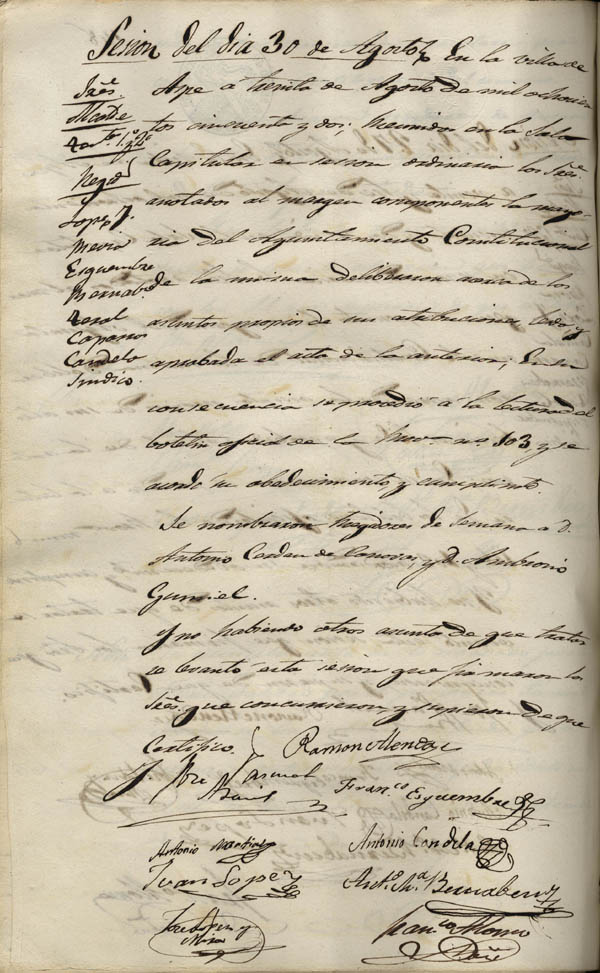 Sesion del dia 30 de Agosto. En la villa de
Sres.
Alcalde
Ttes. 1º y 2º
Regs.
Lopez
Mira
Esquembre
Bernabe
Candela
Sindico.
Aspe á treinta de Agosto de mil ochocien
tos cincuenta y dos; Reunidos en la Sala
Capitular en sesion ordinaria los Sres.
anotados al margen componentes la mayo-
ria del Ayuntamiento Constitucional
de la misma deliberaron acerca de los
asuntos propios de sus atribuciones leida y
aprobada el acta de la anterior; En su
consecuencia se procedió á la lectura del
boletin oficial de la Prova. nº 103 y se
acordó su obedecimiento y cumplimto.
Se nombraron Regidores de Semana a D.
Antonio Cerdan de Canovas, y D. Ambrosio
Gumiel.
Y no habiendo otros asuntos de que tratar
se levantó esta sesion que firmaron los
Sres. que concurrieron, y supieron de que
Certifico.
Ramon
J. Jose Pascual
Franco. Esquembre
Antonio Martinez
Antonio Candela
Juan Lopez
Anto. Ma. Bernabeu
Jose Lopez y
Mira
Franco. Alonso